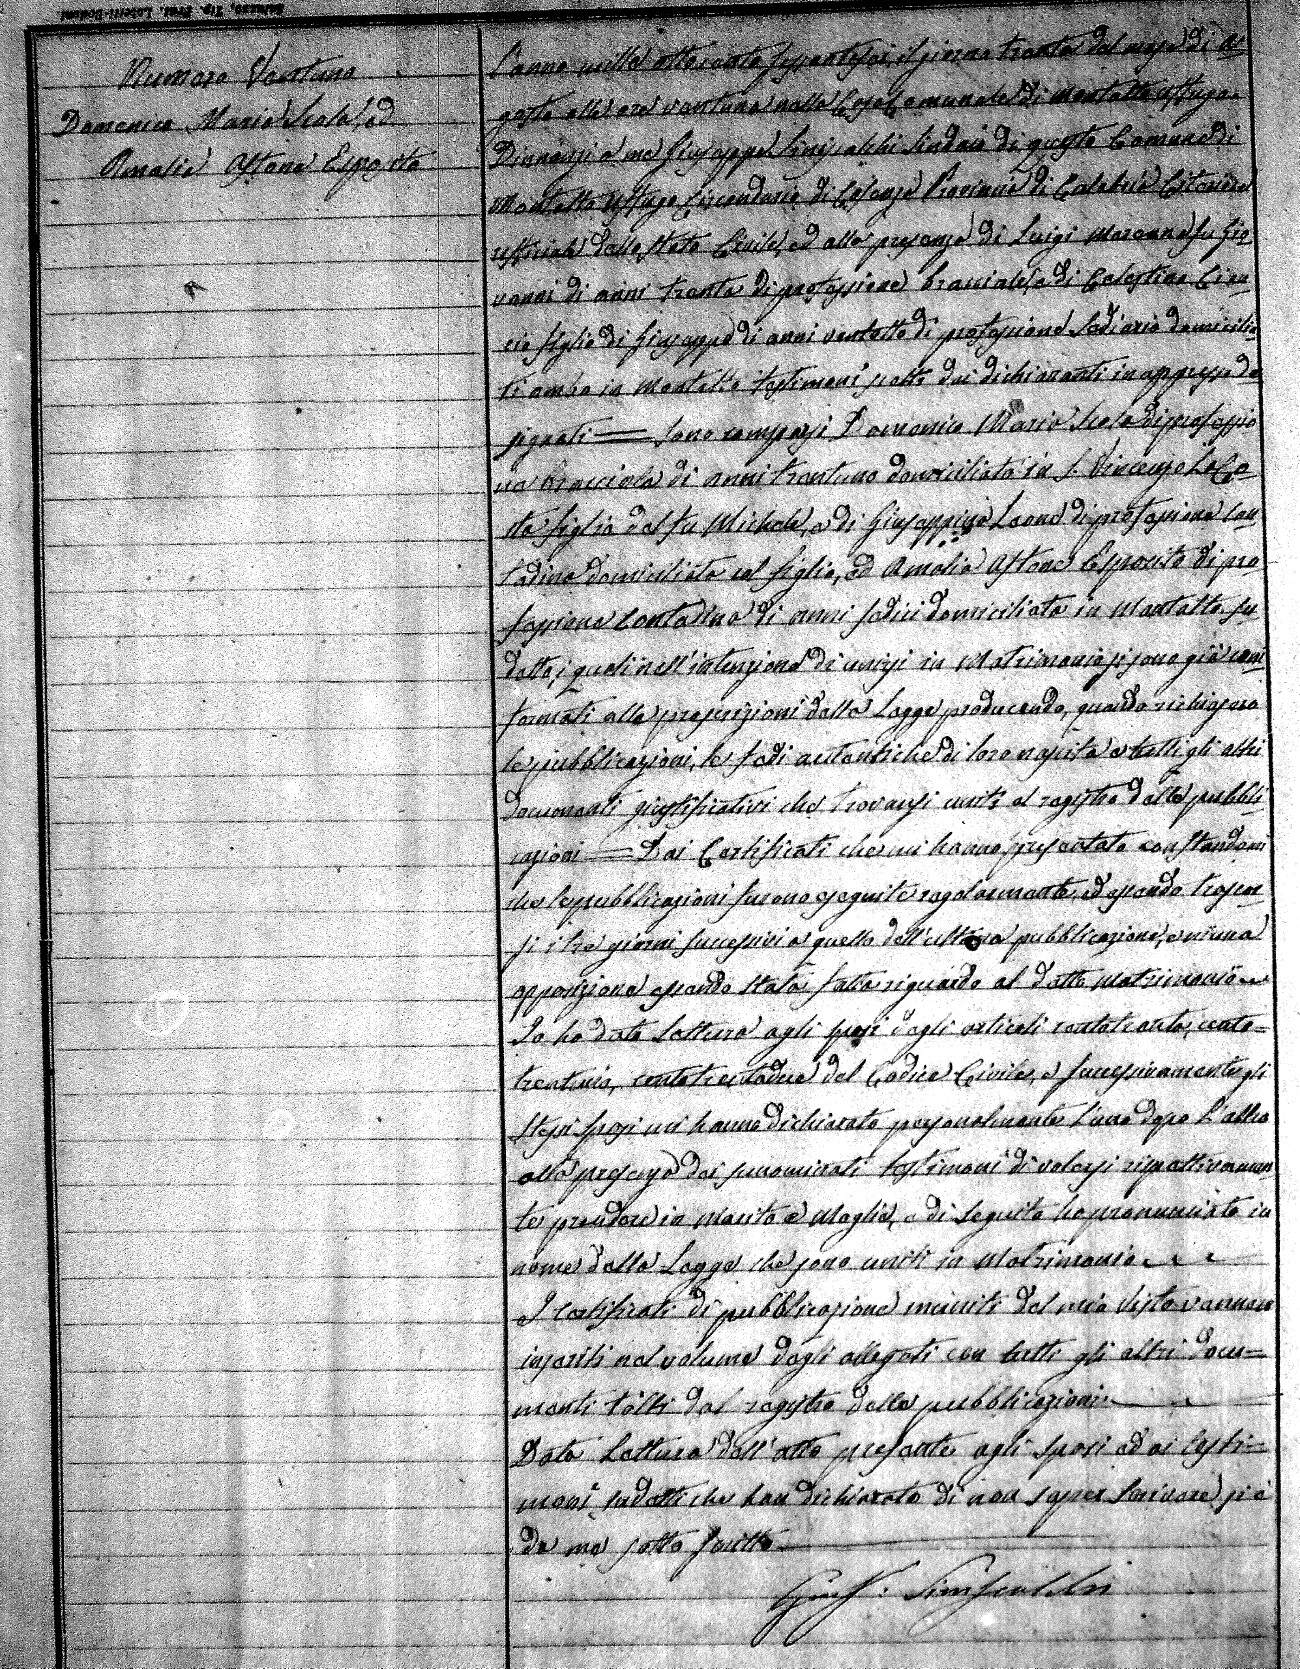 Numero Ventuno
Domenico Maria Scola, ed
Amalia Astone Esposito
L'anno mille ottocento sessantasei, il giorno trenta del mese di A-
gosto alle ore ventuna nella Casa Comunale di Montalto Uffugo.
Dinnanzi a me Giuseppe Siniscalchi Sindaco di questo Comune di
Montalto Uffugo Circondario di Cosenza Provincia di Calabria Citeriore
uffiziale dello Stato Civile, ed alla presenza di Luigi Marcanna fu Gio
vanni di anni trenta di professione bracciale, e di Celestino
cio figlio di Giuseppe di anni ventotto di professione Sediario domicilia
ti ambo in Montalto testimoni scelti dai dichiaranti in appresso de
signati = Sono comparsi Domenico Maria Scola di professio
ne Bracciale di anni trentuno domiciliato in S. Vincenzo La Co-
sta figlio del fu Michele, e di Giuseppina Leone di professione Con
tadina domiciliata col figlio, ed Amalia Astone Esposito di pro
fessione Contadina di anni sedici domiciliata in Montalto su
detto, i quali nell'intenzione di unirsi in Matrimonio si sono già con
formati alle prescrizioni della Legge producendo, quando richiesero
le pubblicazioni, le fedi autentiche di loro nascita e tutti gli altri
documenti giustificativi che trovansi uniti al registro delle pubbli
cazioni = Dai Certificati che mi hanno presentato constandomi
che le pubblicazioni furono eseguite regolarmente, ed essendo trascor
si i tre giorni successivi a quello dell'ultima pubblicazione, e niuna
opposizione essendo stata fatta riguardo al detto Matrimonio
Io ho dato lettura agli sposi degli articoli centotrenta, cento-
trentuno, centotrentadue del Codice Civile, e successivamente gli
stessi sposi mi hanno dichiarato personalmente l'uno dopo l'altro
alla presenza dei sunominati testimoni di volersi rispettivamen
te prendere in Marito e Moglie, e di seguito ho pronunciato in
nome della Legge che sono uniti in Matrimonio
I certificati di pubblicazione muniti del mio Visto vennero
inseriti nel volume degli allegati con tutti gli altri docu=
menti tolti dal registro delle pubblicazioni
Data Lettura dell'atto presente agli sposi ed ai testi=
moni sudetti che han dichiarato di non saper Scrivere, si è
da me sotto scritto
Gius: Siniscalchi